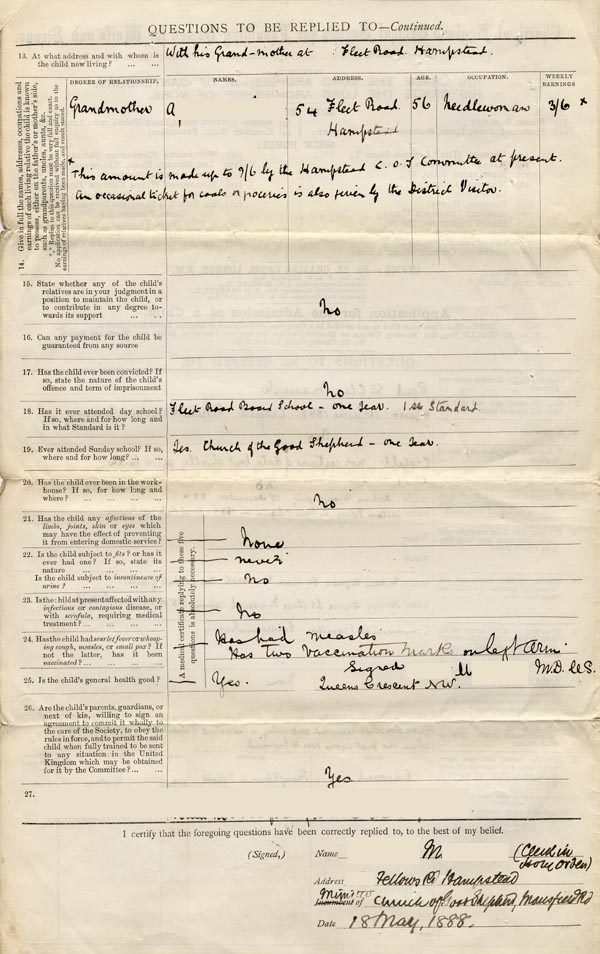 QUESTIONS TO BE REPLIED TO—Continued.
13. At what address and with whom is
the child now living? ... ...
With his Grand-mother at Fleet Road. Hampstead.
14. Give in full the names, addresses, occupations and
earnings of each living relative the child is known
to possess, either on the father's or mother's side,
such as grandparents, uncles, aunts, &c.
*** Replies to this question must be very full and exact.
No application can be received without full enquiry as to the
earnings of relatives having been made, and result stated.
DEGREE OF RELATIONSHIP. NAMES. ADDRESS. AGE. OCCUPATION. WEEKLY EARNINGS
Grandmother A, 54 Fleet Road. 56 Needlewoman 3/6 *
Hampstead
* This amount is made up to 7/6 by the Hampstead C. O. S Committee at present.
An occasional ticket for coals or groceries is also given by the District Visitor.
15. State whether any of the child's
relatives are in your judgment in a
position to maintain the child, or
to contribute in any degree to-
wards its support ... ...
No
16. Can any payment for the child be
guaranteed from any source
17. Has the child ever been convicted? If
so, state the nature of the child's
offence and term of imprisonment
No
18. Has it ever attended day school?
If so, where and for how long and
in what Standard is it?
Fleet Road Board School - one Year. 1st Standard.
19. Ever attended Sunday school? If so,
where and for how long? ... ...
Yes. Church of the Good Shepherd - one Year.
20. Has the child ever been in the work-
house? If so, for how long and
where? ... ... ... ...
No
A medical certificate replying to those five
questions is absolutely necessary.
21. Has the child any affections of the
limbs, joints, skin or eyes which
may have the effect of preventing
it from entering domestic service?
None
22. Is the child subject to fits? or has it
ever had one? If so, state its
nature ... ... ... ...
never
Is the child subject to incontinence of
urine? ... ... ... ...
No
23. Is the child at present affected with any
infectious or contagious disease, or
with scrofula, requiring medical
treatment? ... ... ... ...
No
24. Has the child had scarlet fever or whoop-
ing cough, measles, or small pox? If
not the latter, has it been
vaccinated? ... ... ... ...
Has had measles
Has two vaccination marks on left arm
Signed M.D. &S.
25. Is the child's general health good?
Yes. Queens Crescent N.W.
26. Are the child's parents, guardians, or
next of kin, willing to sign an
agreement to commit it wholly to
the care of the Society, to obey the
rules in force, and to permit the said
child when fully trained to be sent
to any situation in the United
Kingdom which may be obtained
for it by the Committee? ... ...
Yes
27.
I certify that the foregoing questions have been correctly replied to, to the best of my belief.
(Signed,) Name M. (Clerk in
Holy Orders)
Address Fellows Rd Hampstead
Incumbent of Church of Good Shepherd, Mansfield Rd
Date 18 May, 1888.